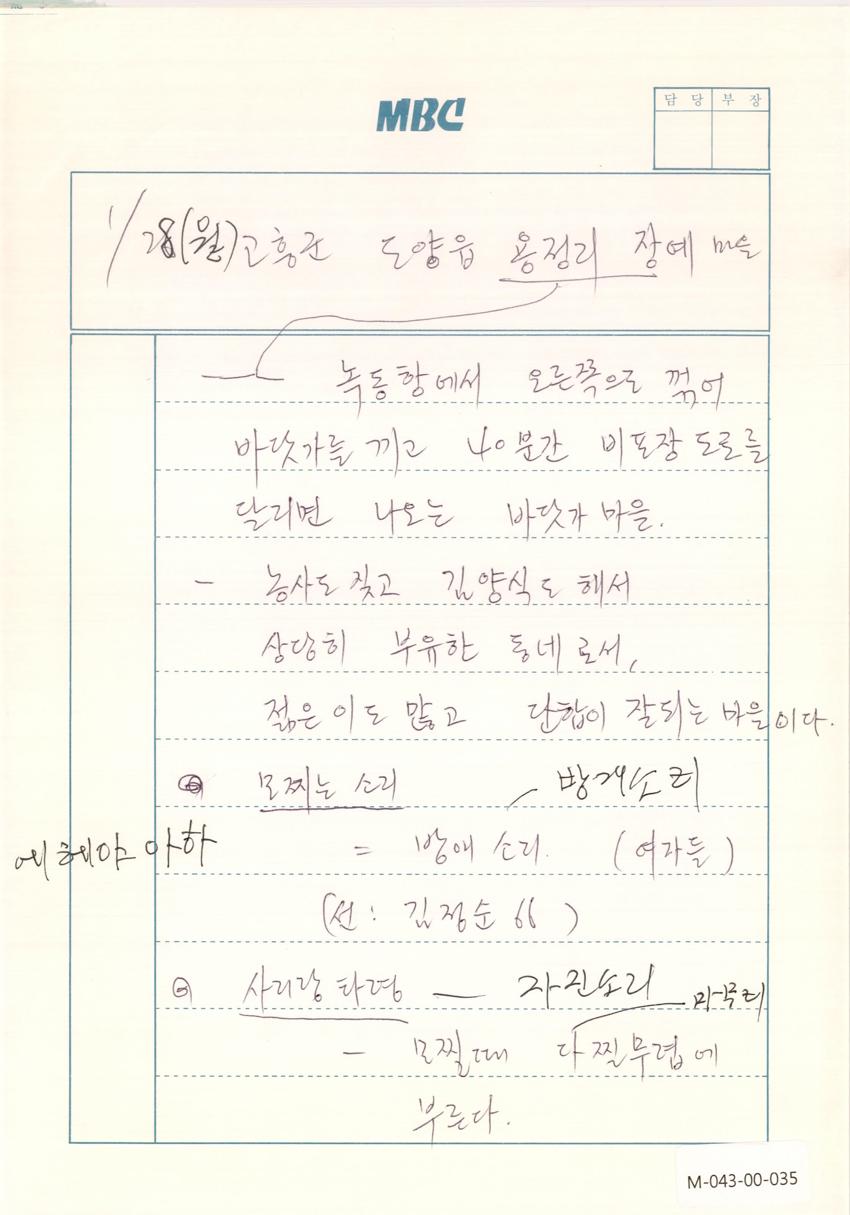 MBC
담당 부장
1/28(월) 고흥군 도양읍 용정리 장예 마을
— 녹동항에서 오른쪽으로 꺾어
바닷가를 끼고 40분간 비포장 도로를
달리면 나오는 바닷가 마을.
– 농사도 짖고 김양식도 해서
상당히 부유한 동네로서,
젊은이도 많고 단합이 잘되는 마을이다.
모찌는 소리 방개소리
에헤야 아하 = 방애 소리. (여자들)
(선: 김정순 66)
사리랑 타령 — 자진소리
– 모찔때 다 찔무렵에
부른다.
M-043-00-035